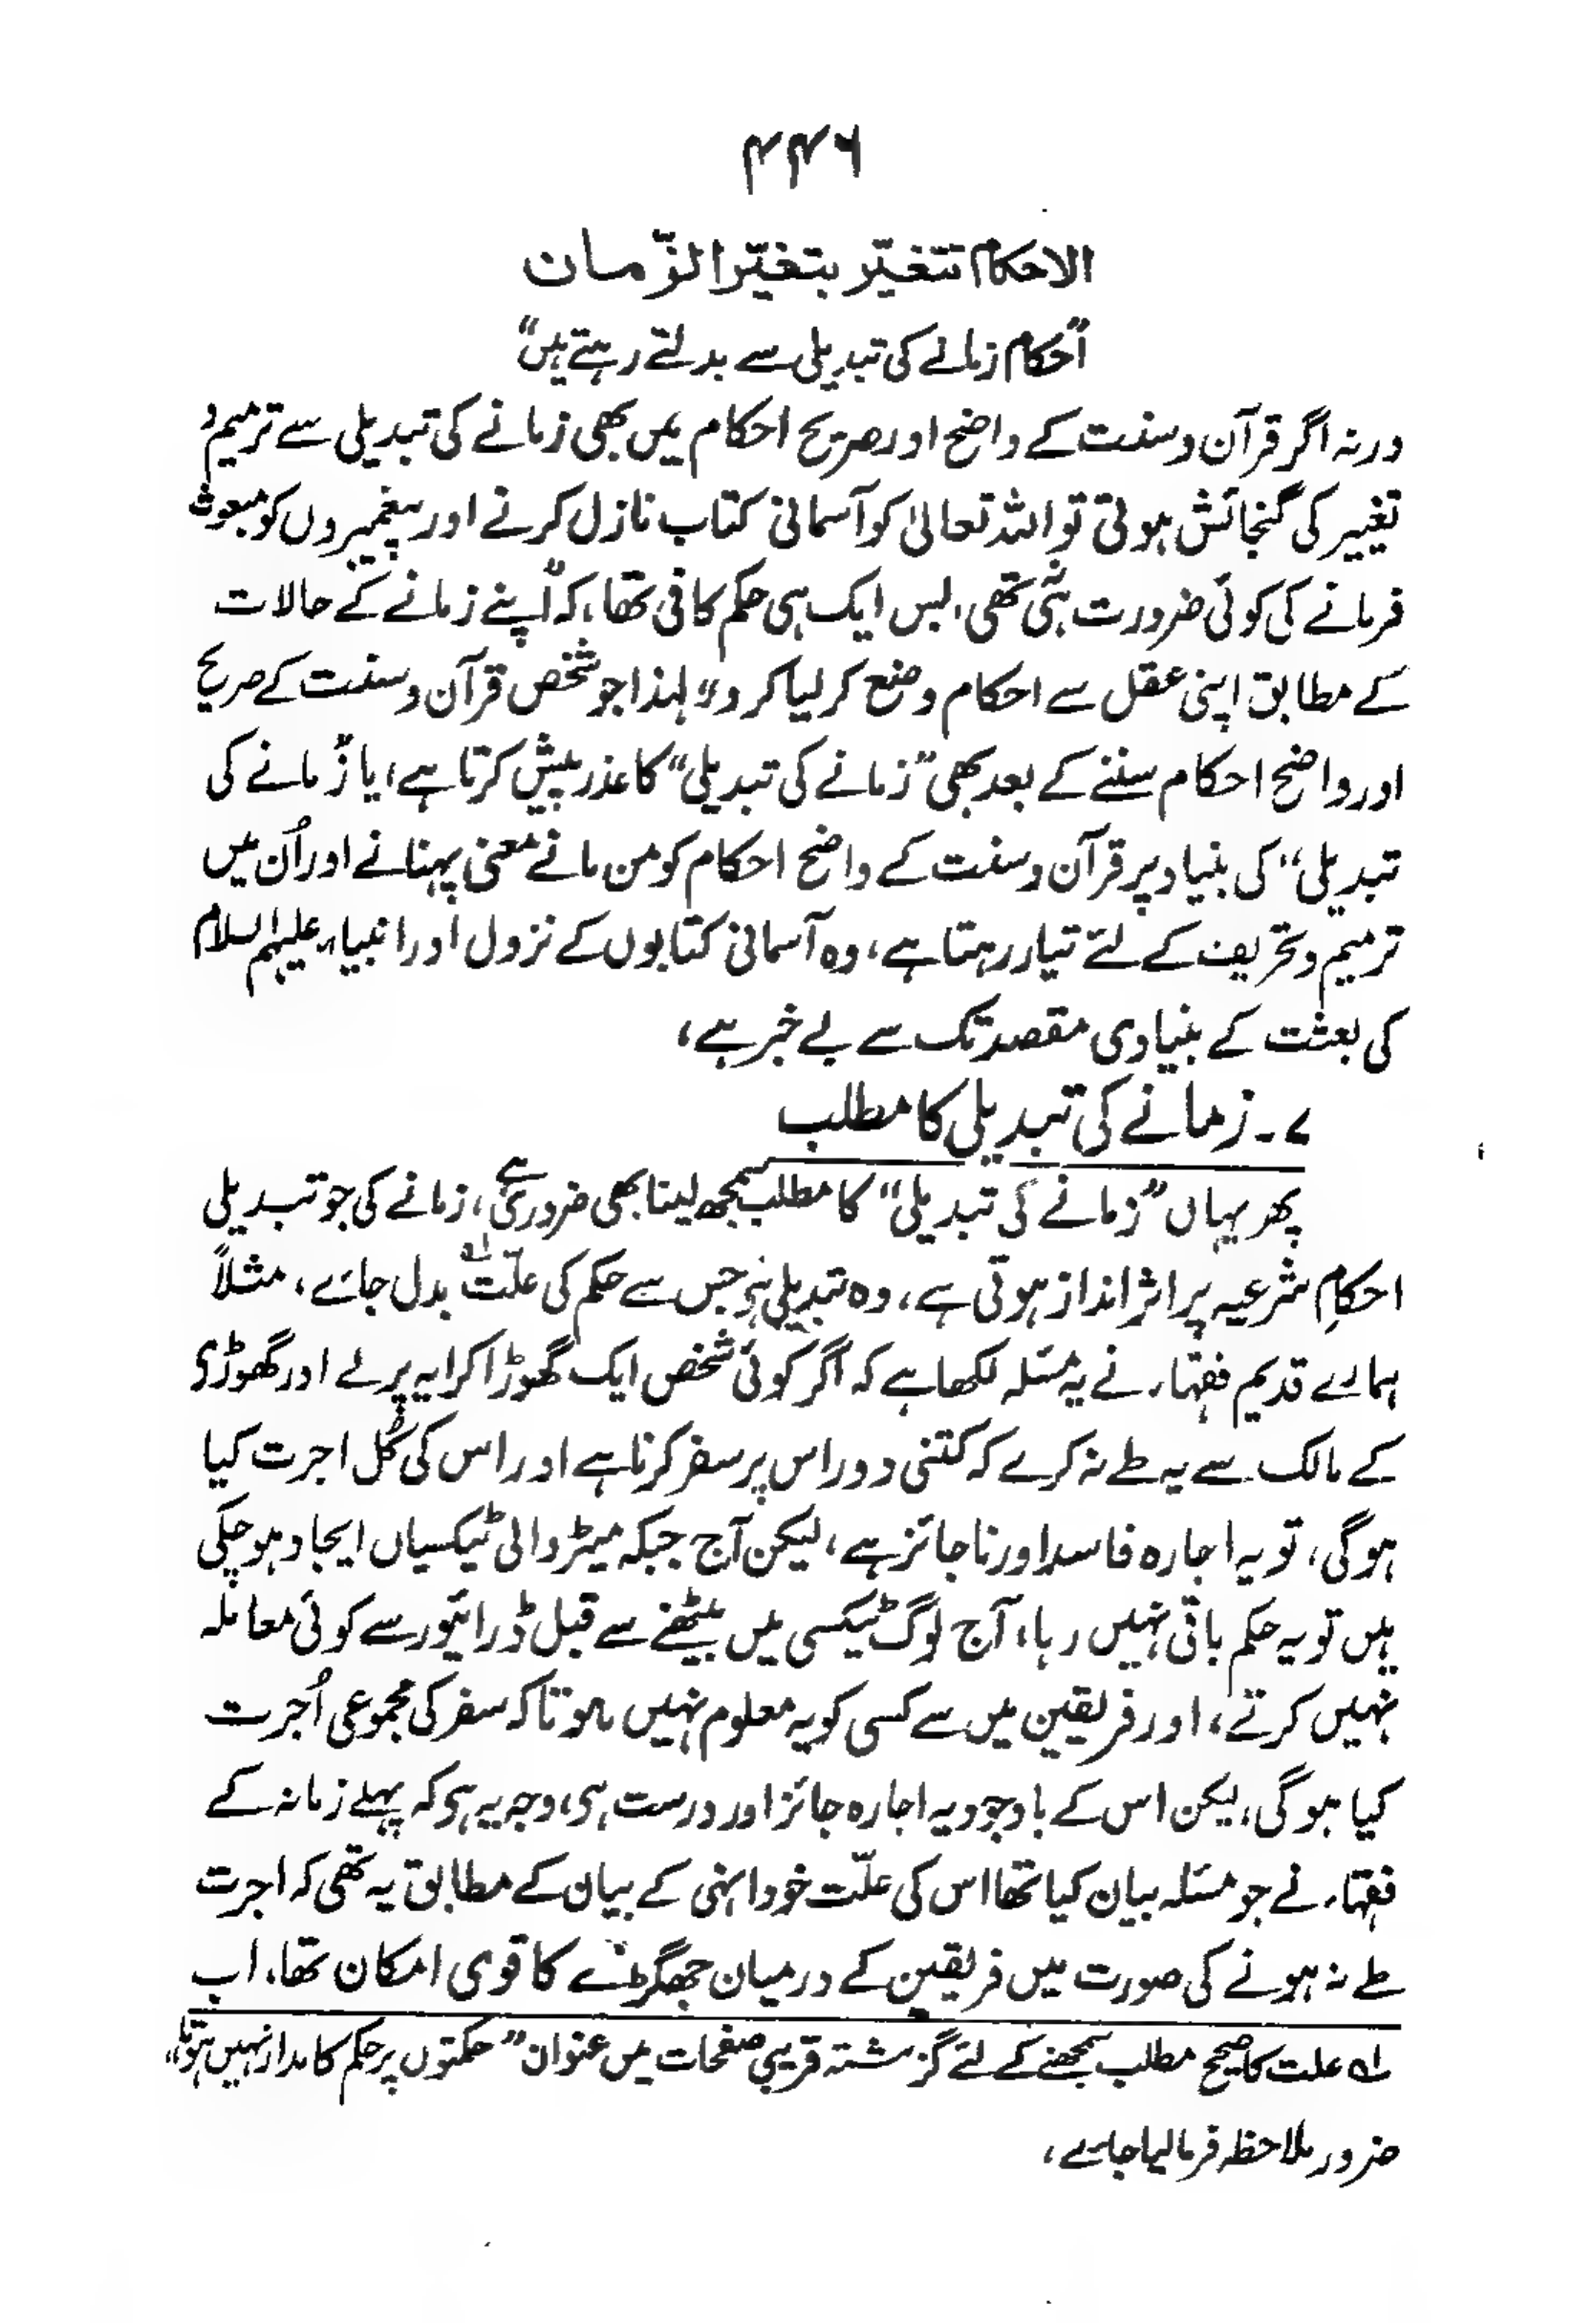 ۴۴۶
الاحکام تتغیّر بتغیّر الزّمان
”احکام زمانے کی تبدیلی سے بدلتے رہتے ہیں“
ورنہ اگر قرآن و سنت کے واضح اور صریح احکام میں بھی زمانے کی تبدیلی سے ترمیم و
تغییر کی گنجائش ہوتی تو اللہ تعالیٰ کو آسمانی کتاب نازل کرنے اور پیغمبروں کو مبعوث
فرمانے کی کوئی ضرورت نہیں تھی، بس ایک ہی حکم کافی تھا، کہ ”اپنے زمانے کے حالات
کے مطابق اپنی عقل سے احکام وضع کر لیا کرو“ لہٰذا جو شخص قرآن و سنت کے صریح
اور واضح احکام سننے کے بعد بھی ”زمانے کی تبدیلی“ کا عذر پیش کرتا ہے، یا ”زمانے کی
تبدیلی“ کی بنیاد پر قرآن و سنت کے واضح احکام کو من مانے معنی پہنانے اور اُن میں
ترمیم و تحریف کے لئے تیار رہتا ہے، وہ آسمانی کتابوں کے نزول اور انبیاء علیہم السلام
کی بعثت کے بنیادی مقصد تک سے بے خبر ہے،
۷۔ زمانے کی تبدیلی کا مطلب
پھر یہاں ”زمانے کی تبدیلی“ کا مطلب سمجھ لینا بھی ضروری ہے، زمانے کی جو تبدیلی
احکامِ شرعیہ پر اثر انداز ہوتی ہے، وہ تبدیلی ہے جس سے حکم کی علّت ؎۱ بدل جائے، مثلاً
ہمارے قدیم فقہاء نے یہ مسئلہ لکھا ہے کہ اگر کوئی شخص ایک گھوڑا کرایہ پر لے اور گھوڑی
کے مالک سے یہ طے نہ کرے کہ کتنی دور اس پر سفر کرنا ہے اور اس کی کُل اجرت کیا
ہوگی، تو یہ اجارہ فاسد اور ناجائز ہے، لیکن آج جبکہ میٹر والی ٹیکسیاں ایجاد ہو چکی
ہیں تو یہ حکم باقی نہیں رہا، آج لوگ ٹیکسی میں بیٹھنے سے قبل ڈرائیور سے کوئی معاملہ
نہیں کرتے، اور فریقین میں سے کسی کو یہ معلوم نہیں ہوتا کہ سفر کی مجموعی اُجرت
کیا ہوگی، لیکن اس کے باوجود یہ اجارہ جائز اور درست ہی، وجہ یہ ہی کہ پہلے زمانہ کے
فقہاء نے جو مسئلہ بیان کیا تھا اس کی علّت خود انہی کے بیان کے مطابق یہ تھی کہ اجرت
طے نہ ہونے کی صورت میں فریقین کے درمیان جھگڑے کا قوی امکان تھا، اب
؎۱ علت کا صحیح مطلب سمجھنے کے لئے گزشتہ قریبی صفحات میں عنوان ”حکمتوں پر حکم کا مدار نہیں ہوتا“
ضرور ملاحظہ فرما لیا جائے،